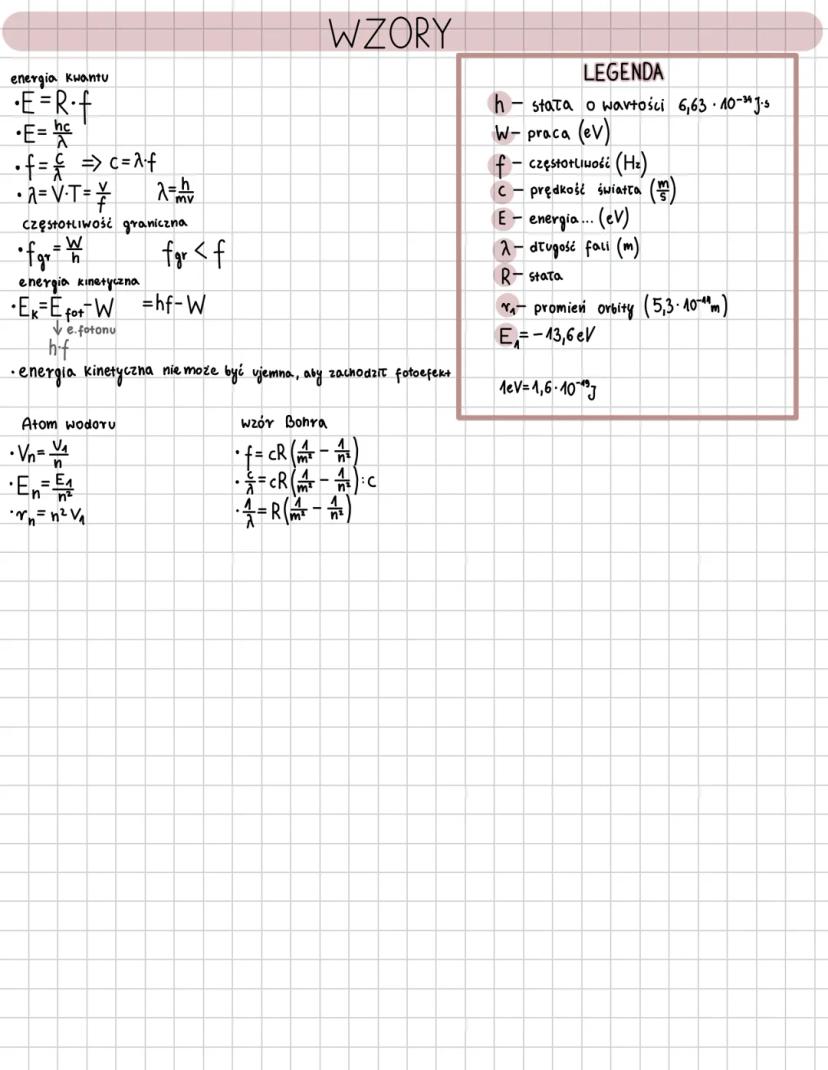 WZORY
energia kwantu
·E=R·f
·E=hc/λ
·f=c/λ => c=λ·f
·λ=V·T=v/f λ=h/mv
częstotliwość graniczna
·fgr=W/h fgr<f
energia kinetyczna
·Ek=Efot-W =hf-W
↓ e.fotonu
h·f
·energia kinetyczna nie może być ujemna, aby zachodził fotoefekt
Atom wodoru
·Vn=V₁/n
·En=E₁/n²
·rn=n²V₁
wzór Bohra
·f=cR(1/m² - 1/n²)
·c/λ=cR(1/m² - 1/n²):c
·1/λ=R(1/m² - 1/n²)
LEGENDA
h- stała o wartości 6,63·10⁻³⁴J·s
W- praca (eV)
f- częstotliwość (Hz)
c- prędkość światła (m/s)
E- energia... (eV)
λ- długość fali (m)
R- stała
r₁- promień orbity (5,3·10⁻¹¹m)
E₁=-13,6eV
1eV=1,6·10⁻¹⁹J